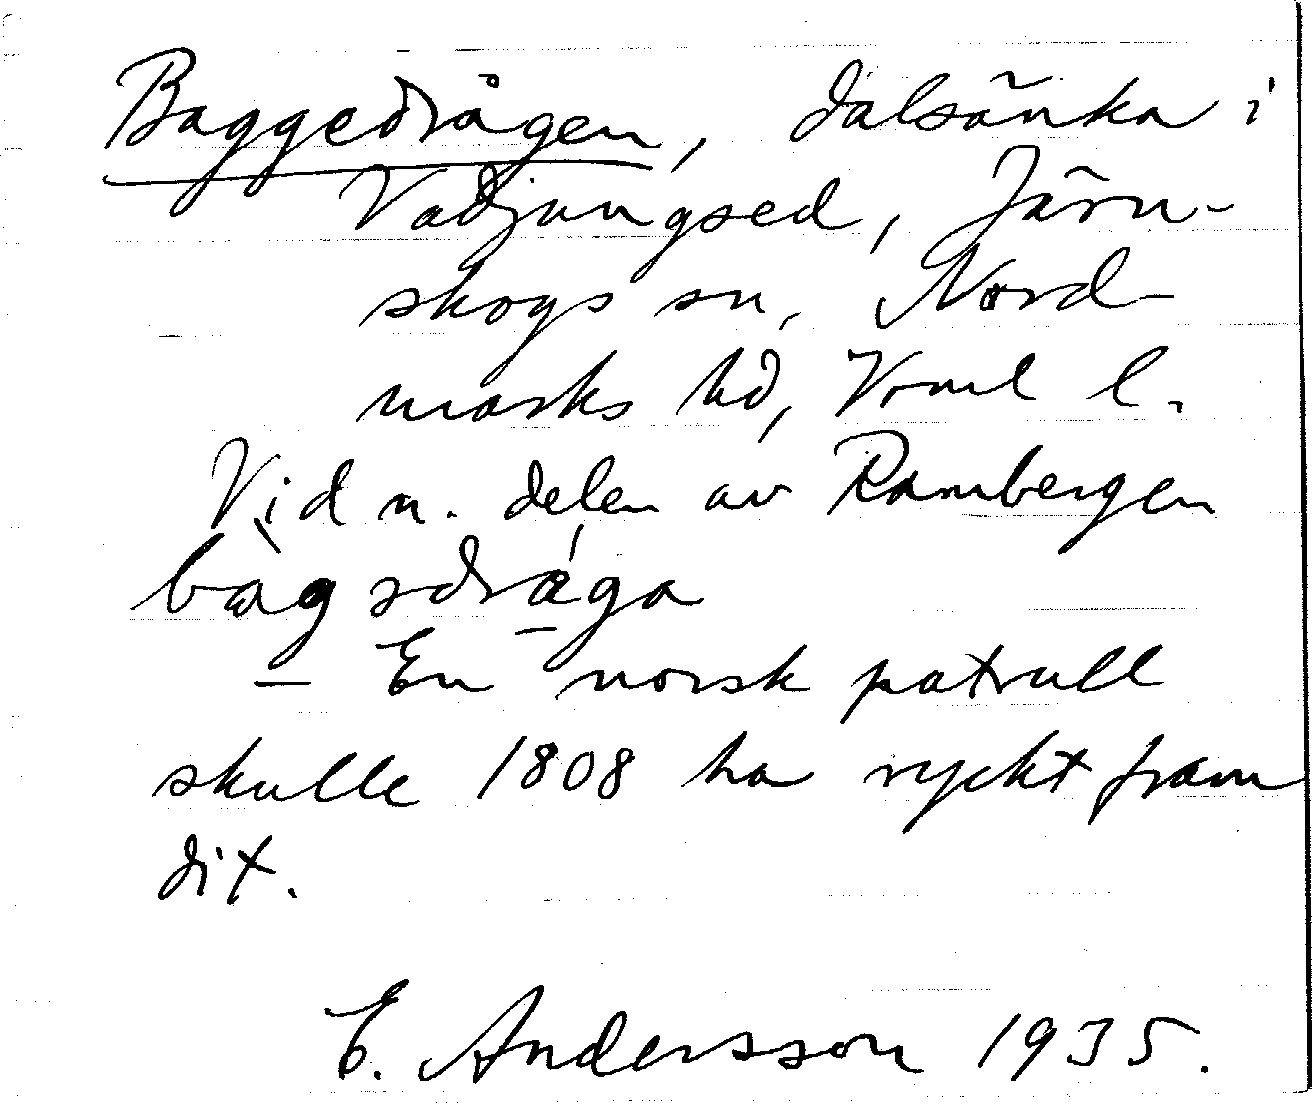 Baggedrågen, dalsänka i
Vadjungsed, Järn-
skogs sn, Nord-
marks hd, Vrml l.
Vid n. delen av Rambergen
bàgədrága
— En norsk patrull
skulle 1808 ha ryckt fram
dit.
E. Andersson 1935.